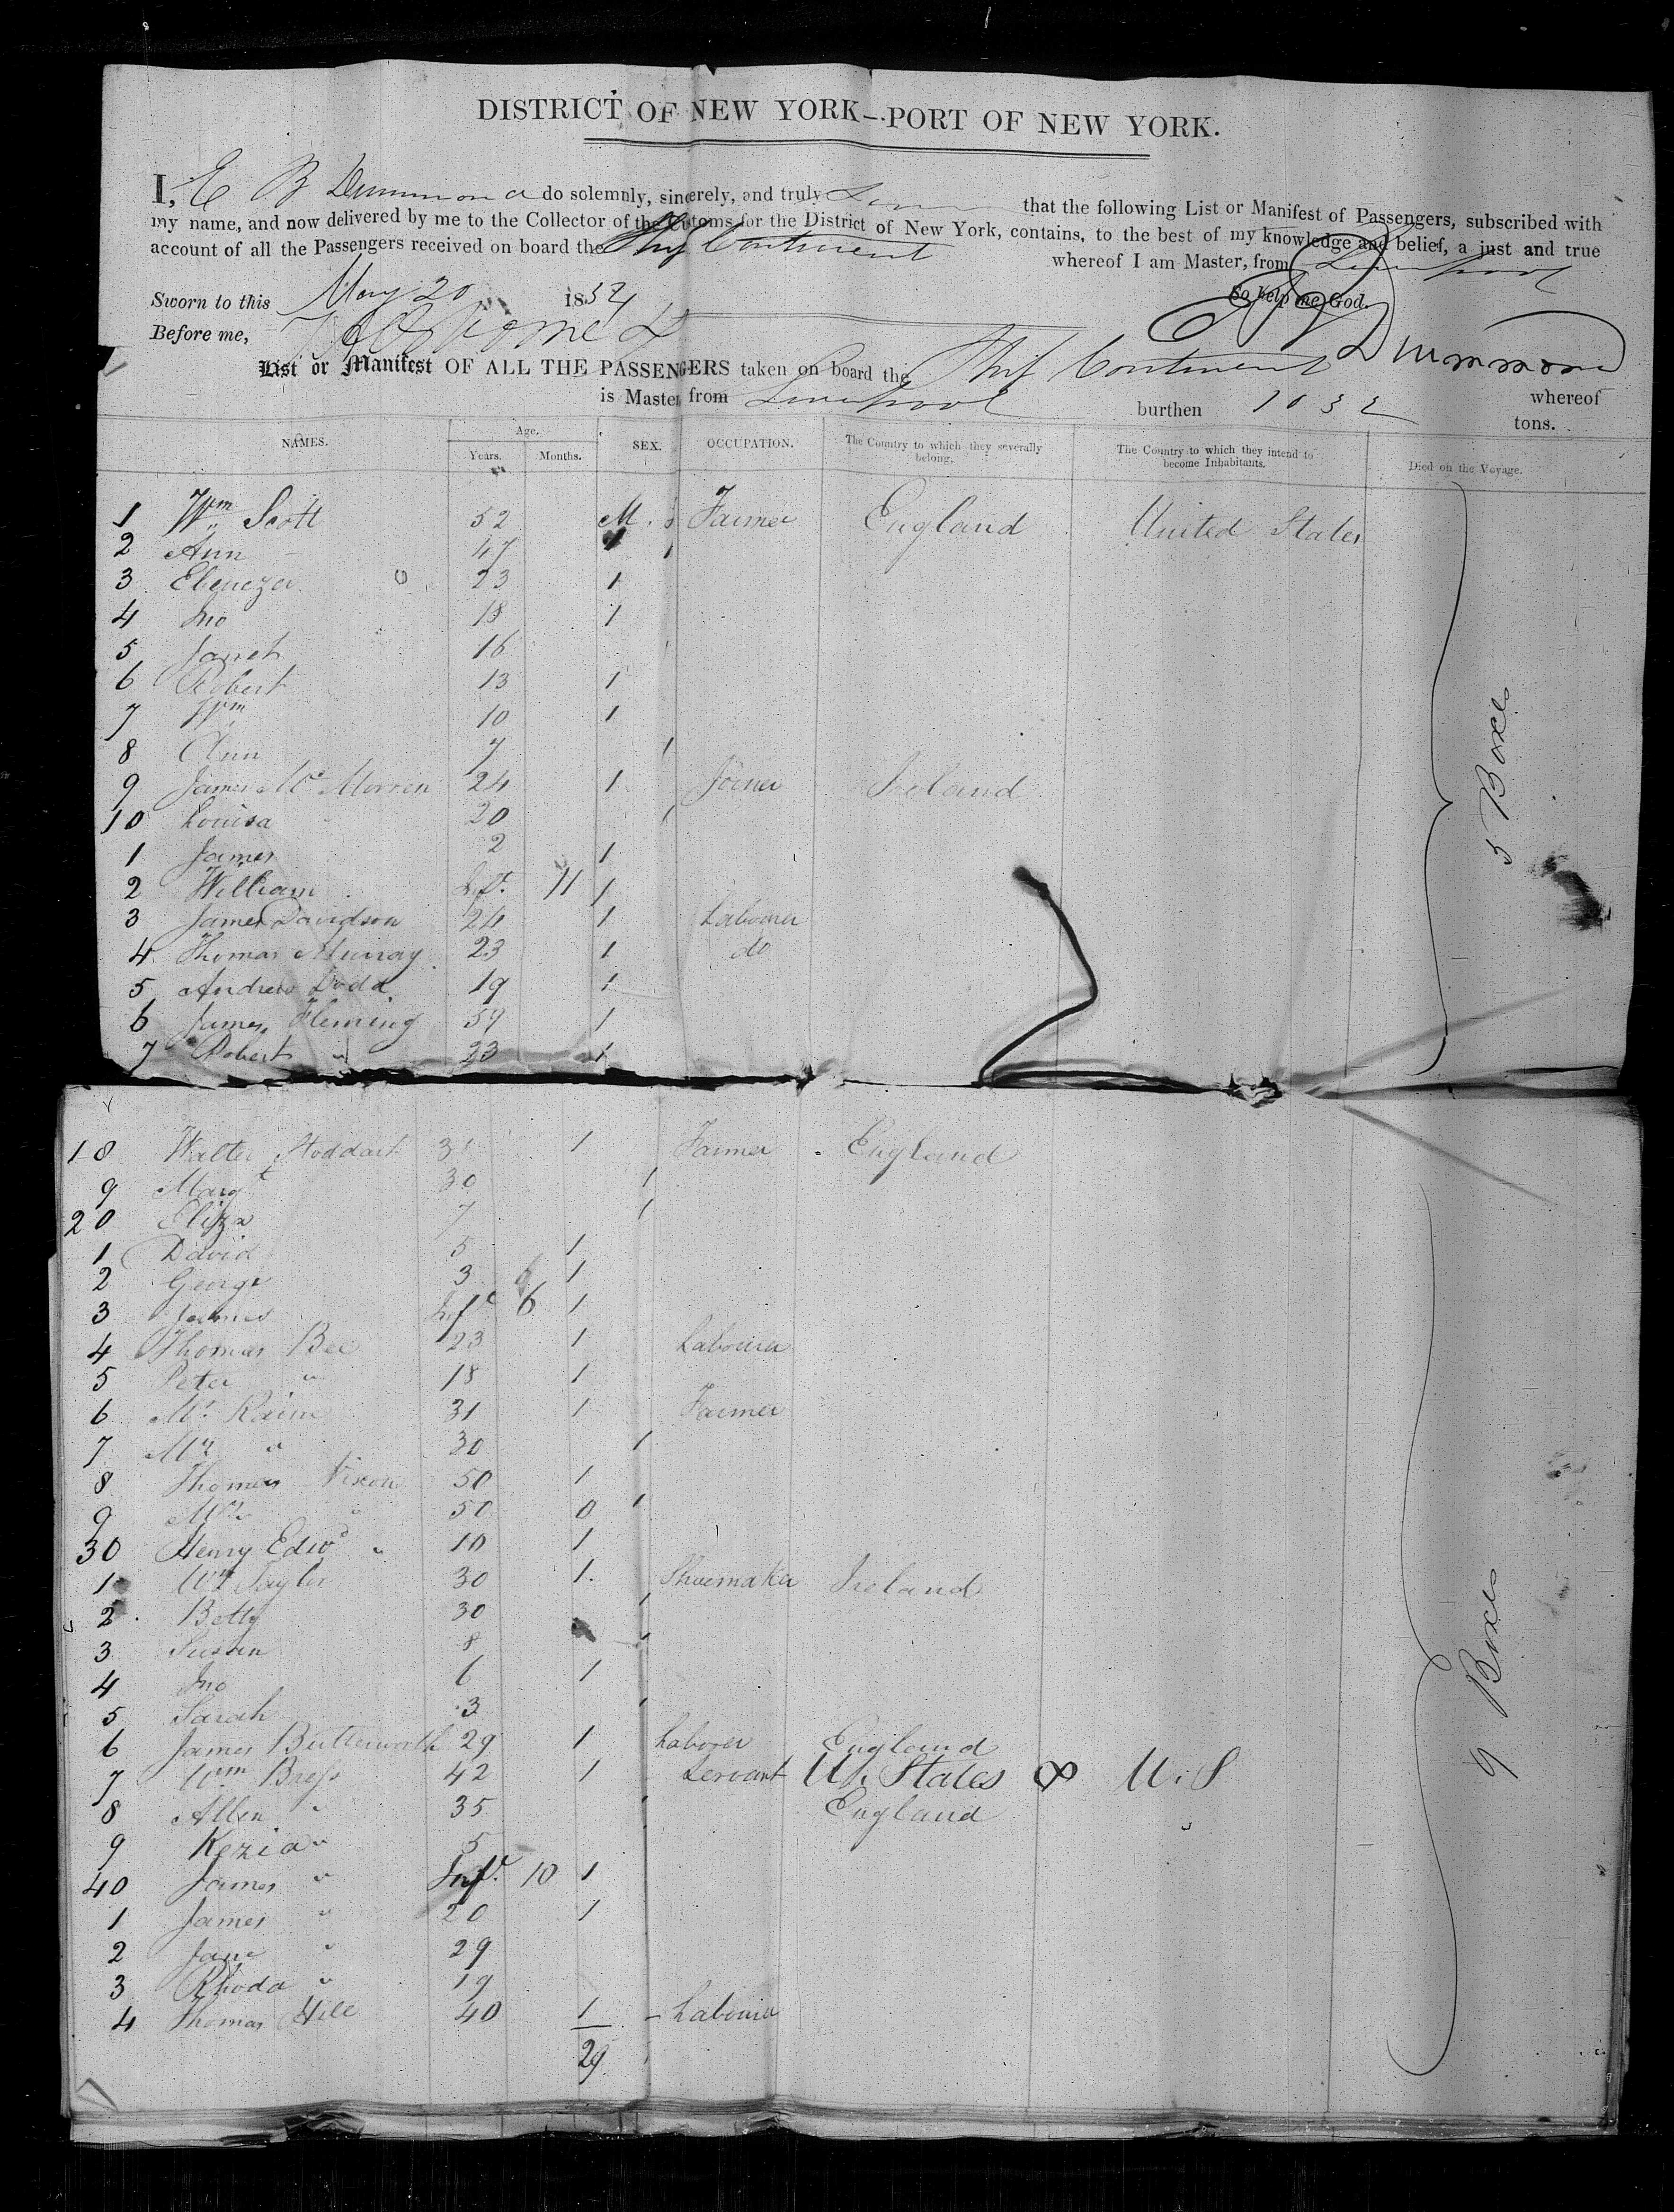 DISTRICT OF NEW YORK—PORT OF NEW YORK.
I, E B Drummond do solemnly, sincerely, and truly that the following List or Manifest of Passengers, subscribed with
my name, and now delivered by me to the Collector of the Customs for the District of New York, contains, to the best of my knowledge and belief, a just and true
account of all the Passengers received on board the Ship Continent whereof I am Master, from Liverpool
Sworn to this May 20 185 So help me God.
Before me, E B Drummond
List or Manifest OF ALL THE PASSENGERS taken on board the Ship Continent whereof
is Master, from Liverpool burthen 1032 tons.
NAMES. Age. Years. Months. SEX. OCCUPATION. The Country to which they severally belong. The Country to which they intend to become Inhabitants. Died on the Voyage.
1 Wm Scott 52 M. Farmer England United States
2 Ann 47 1
3 Ebenezer 23 1
4 Jno 18 1
5 Janet 16
6 Robert 13 1
7 Wm 10 1
8 Ann 7 1
9 James Mc Morren 24 1 Joiner Ireland
10 Louisa 20 1
1 James 2 1
2 William Inft. 11 1
3 James Davidson 24 1 Labourer
4 Thomas Murray 23 1 do
5 Andrew Dodd 19 1
6 James Fleming 59 1
7 Robert " 23 1
5 Boxes
18 Walter Stoddart 31 1 Farmer England
9 Margt 30 1
20 Eliza 7 1
1 David 5 1
2 George 3 1
3 James Inft 6 1
4 Thomas Bee 23 1 Labourer
5 Peter " 18 1
6 Mr. Raine 31 1 Farmer
7 " 30 1
8 Thomas Nixon 50 1
9 Mrs " 50 0 1
30 Henry Edwd " 10 1
1 Wm Taylor 30 1. Shoemaker Ireland
2 Betty 30 1
3 Susan 8 1
4 Jno 6 1
5 Sarah 3 1
6 James Butterworth 29 1 Laborer England
7 Wm Bress 42 1 Servant U. States U. S
8 Allen " 35 1 England
9 Kezia " 5
40 James " Inft. 10 1
1 James " 20 1
2 Jane " 29
3 Rhoda " 19
4 Thomas Hill 40 1 Labourer
29
9 Boxes